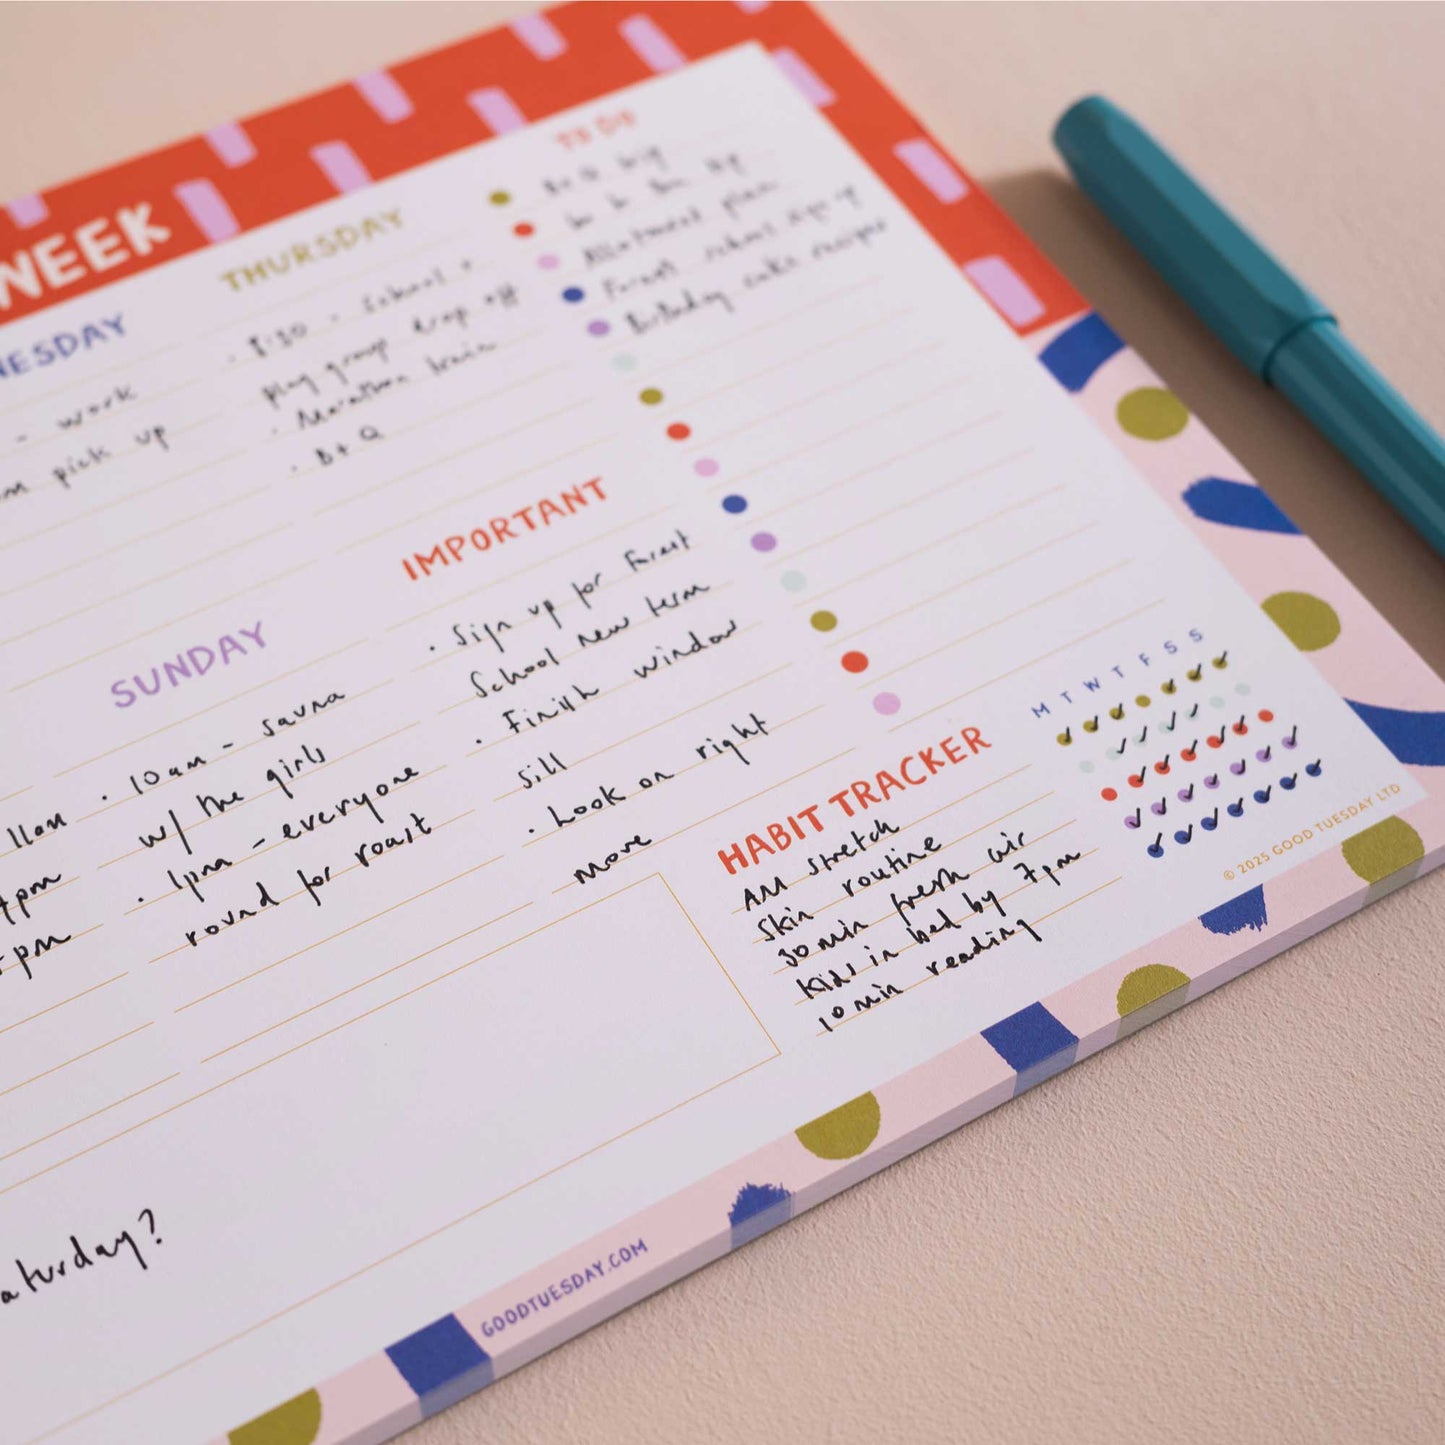 WEEK
NESDAY
- work
pick up
THURSDAY
· 8:30 - school +
play group drop off
· Marathon train
· B+Q
TO DO
B+Q
Allotment plan
Forest school sign up
Birthday cake recipe
IMPORTANT
· Sign up for Forest
School new term
· Finish window
sill
· Look on right
move
11am
7pm
pm
SUNDAY
· 10am - sauna
w/ the girls
· 1pm - everyone
round for roast
HABIT TRACKER
M T W T F S S
AM stretch
skin routine
30 min fresh air
Kids in bed by 7pm
10 min reading
© 2025 GOOD TUESDAY LTD
aturday?
GOODTUESDAY.COM